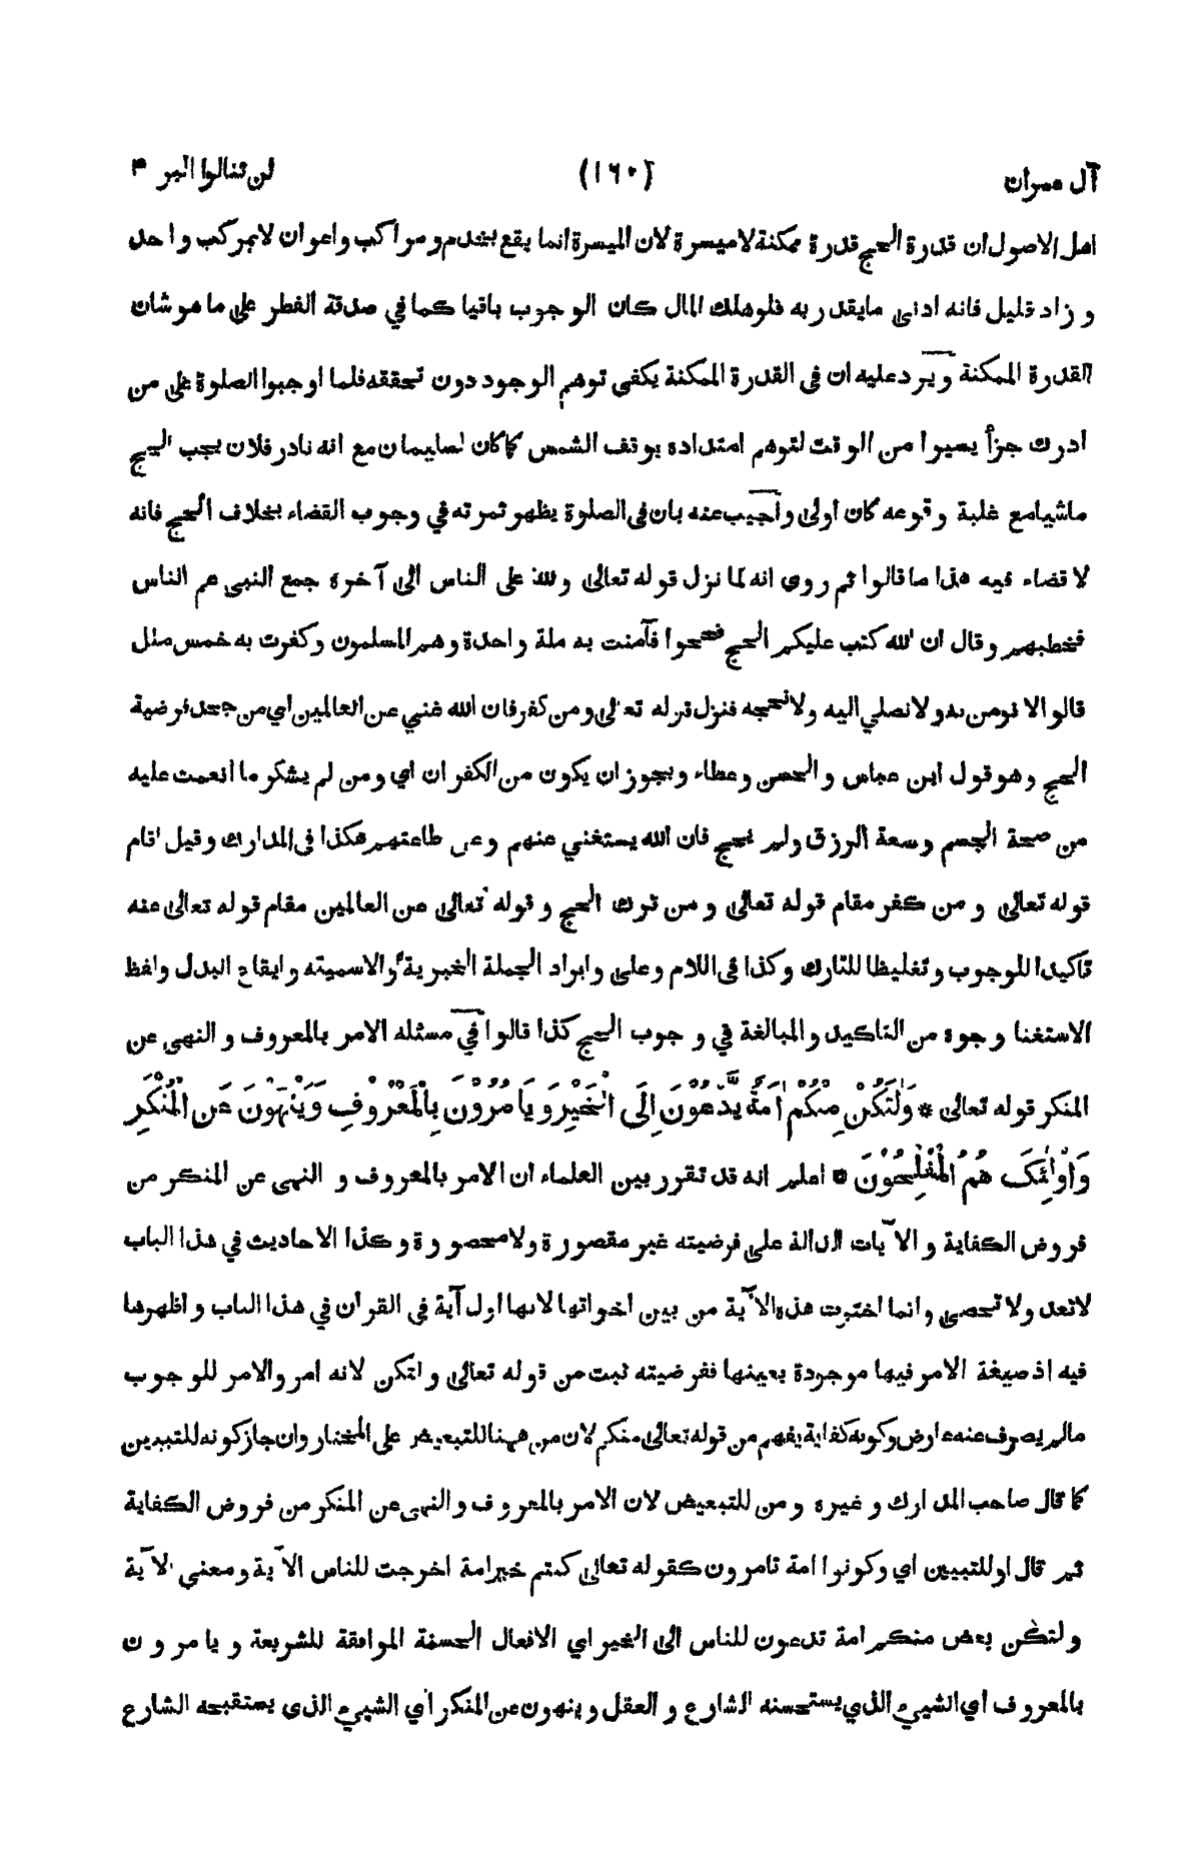 آل عمران (١٦٠) لن تنالوا البر ٣
اهل الاصول ان قدرة الحج قدرة ممكنة لا ميسرة لان الميسرة انما يقع بخدم ومراكب واعوان لا بمركب واحد
وزاد قليل فانه ادنى مايقدر به فلوهلك المال كان الوجوب باقيا كما في صدقة الفطر على ما هو شان
القدرة الممكنة ويرد عليه ان في القدرة الممكنة يكفي توهم الوجود دون تحققه فلما اوجبوا الصلوة على من
ادرك جزأ يسيرا من الوقت لتوهم امتداده بوقف الشمس كما كان لسليمان مع انه نادر فلان يجب الحج
ماشيا مع غلبة وقوعه كان اولى وأجيب عنه بان في الصلوة يظهر ثمرته في وجوب القضاء بخلاف الحج فانه
لا قضاء فيه هذا ما قالوا ثم روى انه لما نزل قوله تعالى ولله على الناس الى آخره جمع النبى عم الناس
فخطبهم وقال ان الله كتب عليكم الحج فحجوا فآمنت به ملة واحدة وهم المسلمون وكفرت به خمس ملل
قالوا لا نومن به ولا نصلي اليه ولا نحجه فنزل قوله تعالى ومن كفر فان الله غني عن العالمين اي من جحد فرضية
الحج وهو قول ابن عباس والحسن وعطاء ويجوز ان يكون من الكفران اي ومن لم يشكر ما انعمت عليه
من صحة الجسم وسعة الرزق ولم يحج فان الله يستغني عنهم وعن طاعتهم هكذا في المدارك وقيل اقام
قوله تعالى ومن كفر مقام قوله تعالى ومن ترك الحج وقوله تعالى عن العالمين مقام قوله تعالى عنه
تاكيدا للوجوب وتغليظا للتارك وكذا في اللام وعلى وايراد الجملة الخبرية والاسميته وايقاع البدل ولفظ
الاستغنا وجوه من التاكيد والمبالغة في وجوب الحج كذا قالوا في مسئله الامر بالمعروف والنهى عن
المنكر قوله تعالى * وَلْتَكُنْ مِنْكُمْ اُمَّةٌ يَّدْعُوْنَ اِلَى الْخَيْرِ وَيَامُرُوْنَ بِالْمَعْرُوْفِ وَيَنْهَوْنَ عَنِ الْمُنْكَرِ
وَاُولٰئِكَ هُمُ الْمُفْلِحُوْنَ * اعلم انه قد تقرر بين العلماء ان الامر بالمعروف و النهى عن المنكر من
فروض الكفاية و الآيات الدالة على فرضيته غير مقصورة ولا محصورة وكذا الاحاديث في هذا الباب
لاتعد ولا تحصى وانما اخترت هذه الآية من بين اخواتها لانها اول آية في القرآن في هذا الباب واظهرها
فيه اذ صيغة الامر فيها موجودة بعينها ففرضيته ثبت من قوله تعالى ولتكن لانه امر والامر للوجوب
مالم يصرف عنه عارض وكونه كفاية يفهم من قوله تعالى منكم لان من ههنا للتبعيض على المختار وان جاز كونه للتبيين
كما قال صاحب المدارك وغيره ومن للتبعيض لان الامر بالمعروف والنهى عن المنكر من فروض الكفاية
ثم قال او للتبيين اي وكونوا امة تامرون كقوله تعالى كنتم خير امة اخرجت للناس الآية ومعنى الآية
ولتكن بعض منكم امة تدعون للناس الى الخير اي الافعال الحسنة الموافقة للشريعة ويامرون
بالمعروف اي الشيء الذي يستحسنه الشارع والعقل وينهون عن المنكر اي الشيء الذي يستقبحه الشارع